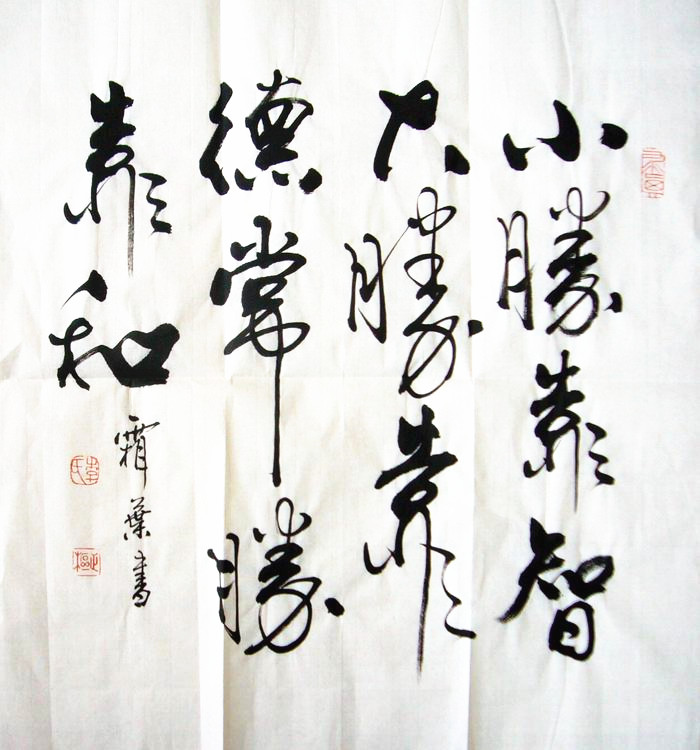 小勝靠智
大勝靠
德常勝
靠和
霜葉書
李氏